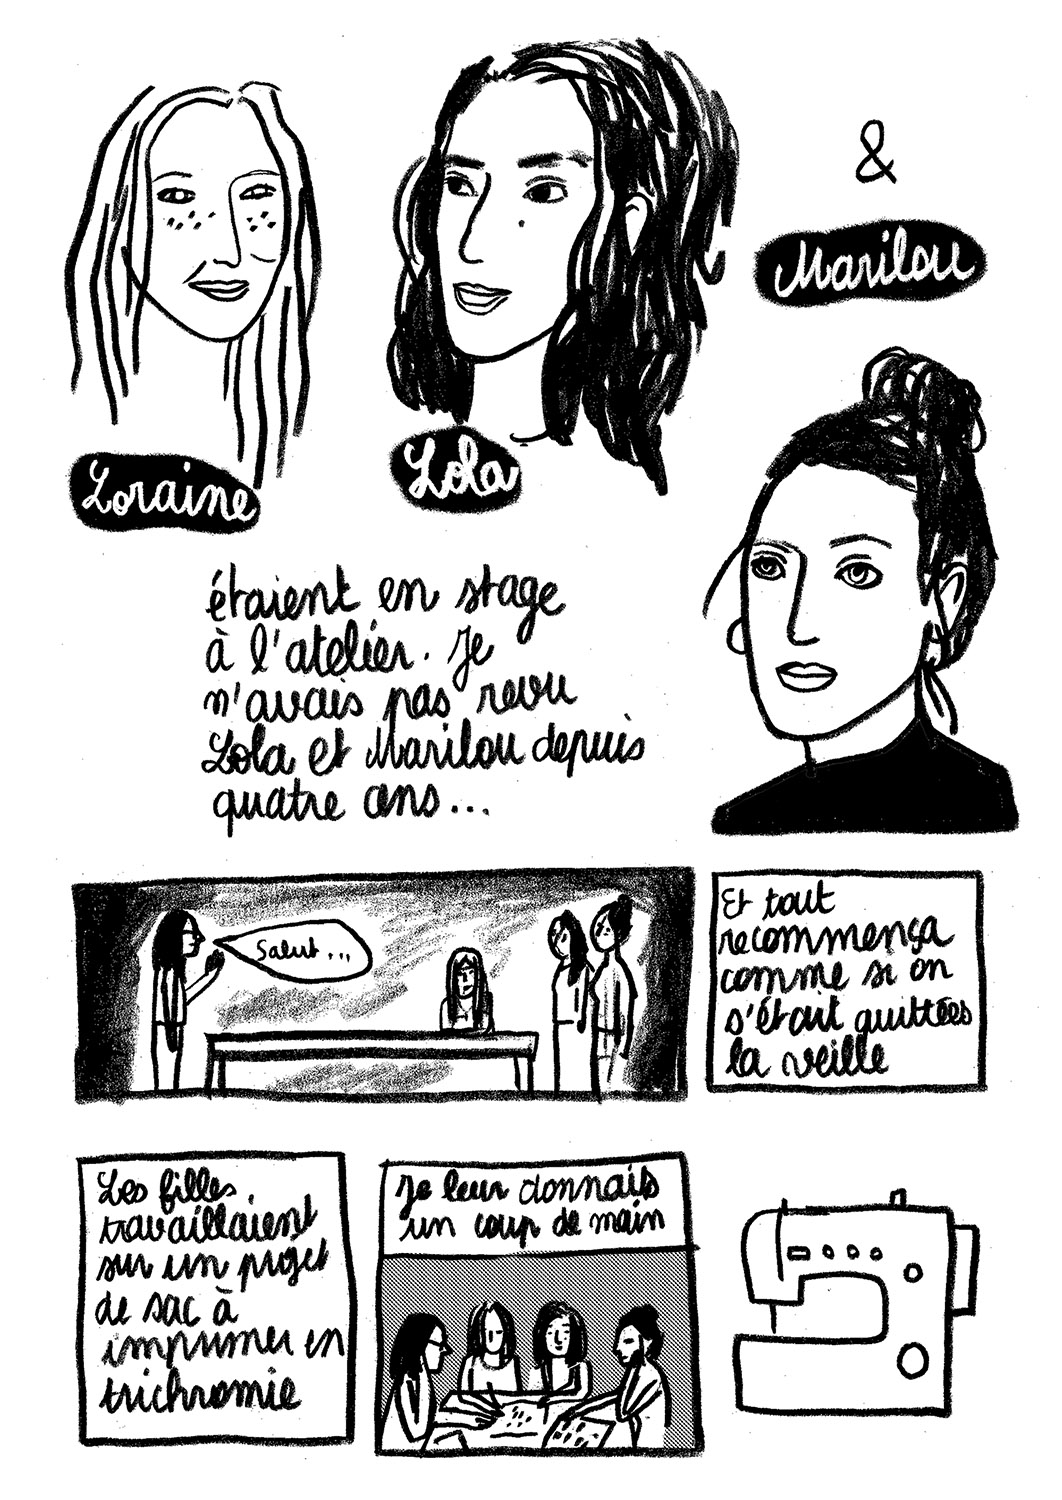 Loraine
Lola
&
Marilou
étaient en stage
à l'atelier. Je
n'avais pas revu
Lola et Marilou depuis
quatre ans...
Salut...
Et tout
recommença
comme si on
s'était quittées
la veille
Les filles
travaillaient
sur un projet
de sac à
imprimer en
trichromie
Je leur donnais
un coup de main